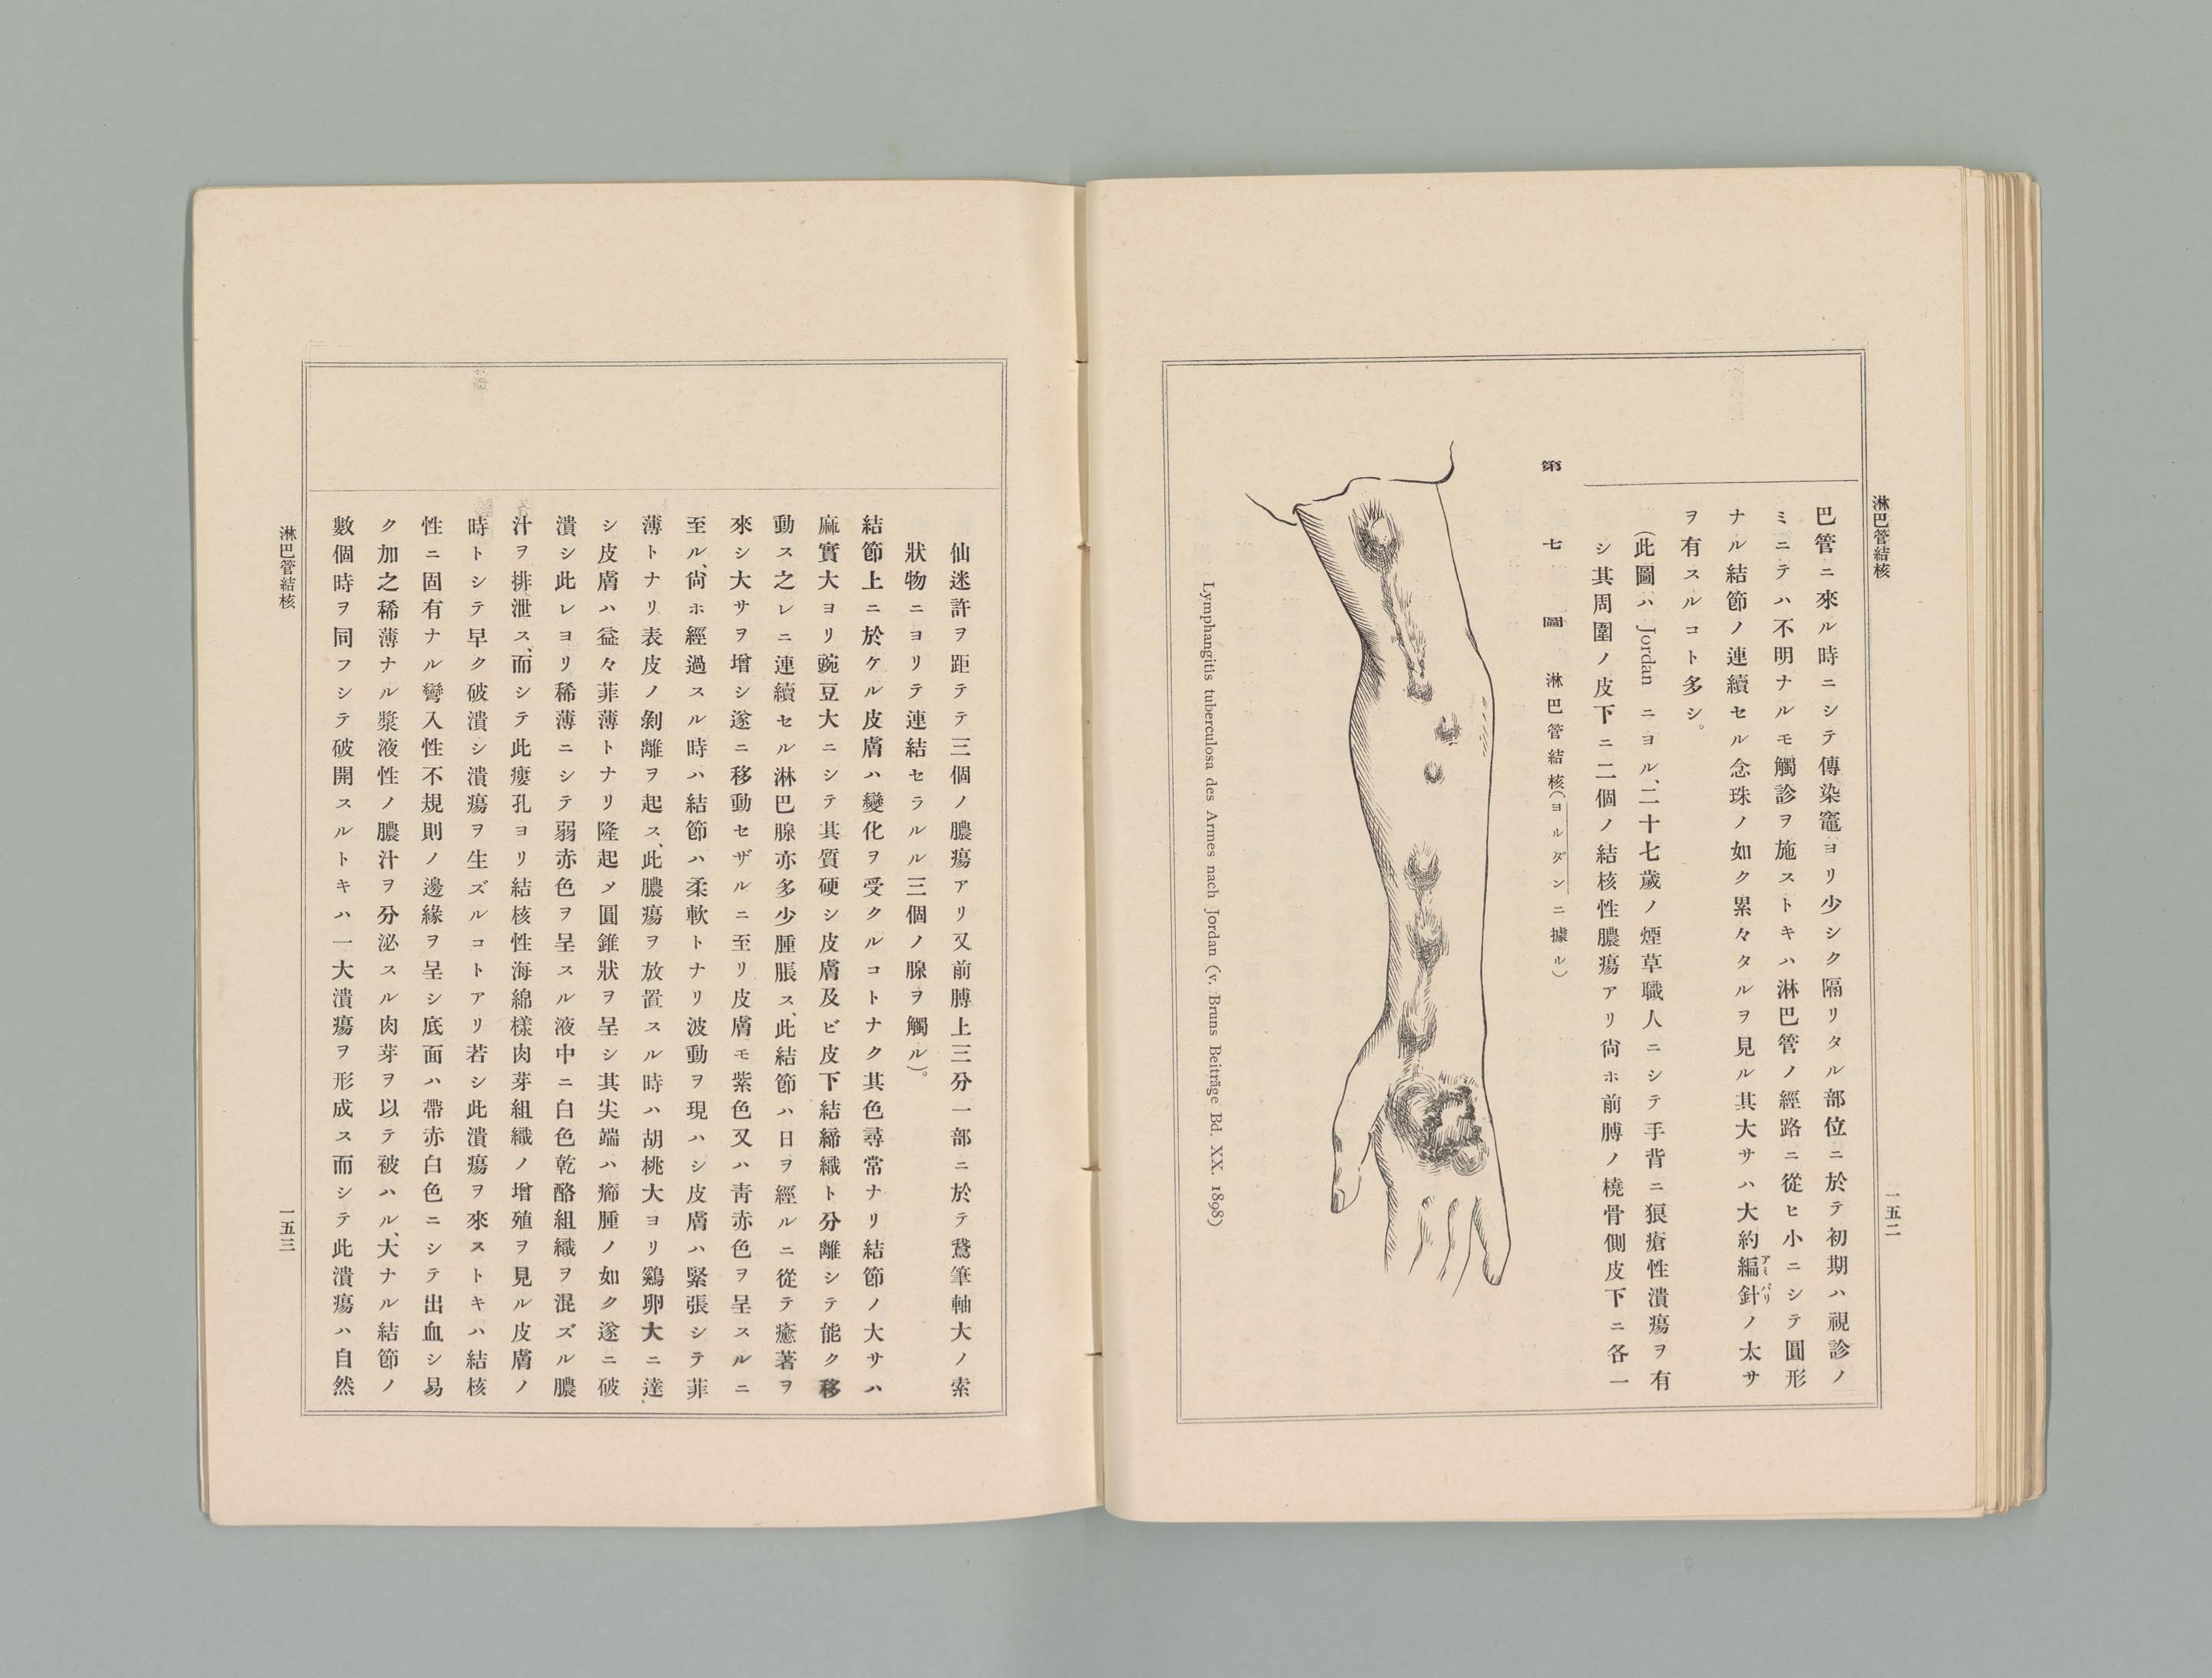 淋巴管結核
一五二
巴管ニ來ル時ニシテ傳染竈ヨリ少シク隔リタル部位ニ於テ初期ハ視診ノ
ミニテハ不明ナルモ觸診ヲ施ストキハ淋巴管ノ經路ニ從ヒ小ニシテ圓形
ナル結節ノ連續セル念珠ノ如ク累々タルヲ見ル其大サハ大約編針ノ太サ
アミバリ
ヲ有スルコト多シ。
(此圖ハ Jordan ニヨル、二十七歲ノ煙草職人ニシテ手背ニ狼瘡性潰瘍ヲ有
シ其周圍ノ皮下ニ二個ノ結核性膿瘍アリ尙ホ前膊ノ橈骨側皮下ニ各一
第七圖 淋巴管結核(ヨルダンニ據ル)
Lymphangitis tuberculosa des Armes nach Jordan (v. Bruns Beiträge Bd. XX. 1898)
仙迷許ヲ距テテ三個ノ膿瘍アリ又前膊上三分一部ニ於テ鵞筆軸大ノ索
狀物ニヨリテ連結セラルル三個ノ腺ヲ觸ル)。
結節上ニ於ケル皮膚ハ變化ヲ受クルコトナク其色尋常ナリ結節ノ大サハ
麻實大ヨリ豌豆大ニシテ其質硬シ皮膚及ビ皮下結締織ト分離シテ能ク移
動ス之レニ連續セル淋巴腺亦多少腫脹ス、此結節ハ日ヲ經ルニ從テ癒著ヲ
來シ大サヲ增シ遂ニ移動セザルニ至リ皮膚モ紫色又ハ靑赤色ヲ呈スルニ
至ル、尙ホ經過スル時ハ結節ハ柔軟トナリ波動ヲ現ハシ皮膚ハ緊張シテ菲
薄トナリ表皮ノ剝離ヲ起ス、此膿瘍ヲ放置スル時ハ胡桃大ヨリ鷄卵大ニ達
シ皮膚ハ益々菲薄トナリ隆起シ圓錐狀ヲ呈シ其尖端ハ癤腫ノ如ク遂ニ破
潰シ此レヨリ稀薄ニシテ弱赤色ヲ呈スル液中ニ白色乾酪組織ヲ混ズル膿
汁ヲ排泄ス、而シテ此瘻孔ヨリ結核性海綿樣肉芽組織ノ增殖ヲ見ル皮膚ノ
時トシテ早ク破潰シ潰瘍ヲ生ズルコトアリ若シ此潰瘍ヲ來ストキハ結核
性ニ固有ナル彎入性不規則ノ邊緣ヲ呈シ底面ハ帶赤白色ニシテ出血シ易
ク加之稀薄ナル漿液性ノ膿汁ヲ分泌スル肉芽ヲ以テ被ハル、大ナル結節ノ
數個時ヲ同フシテ破開スルトキハ一大潰瘍ヲ形成ス而シテ此潰瘍ハ自然
淋巴管結核
一五三